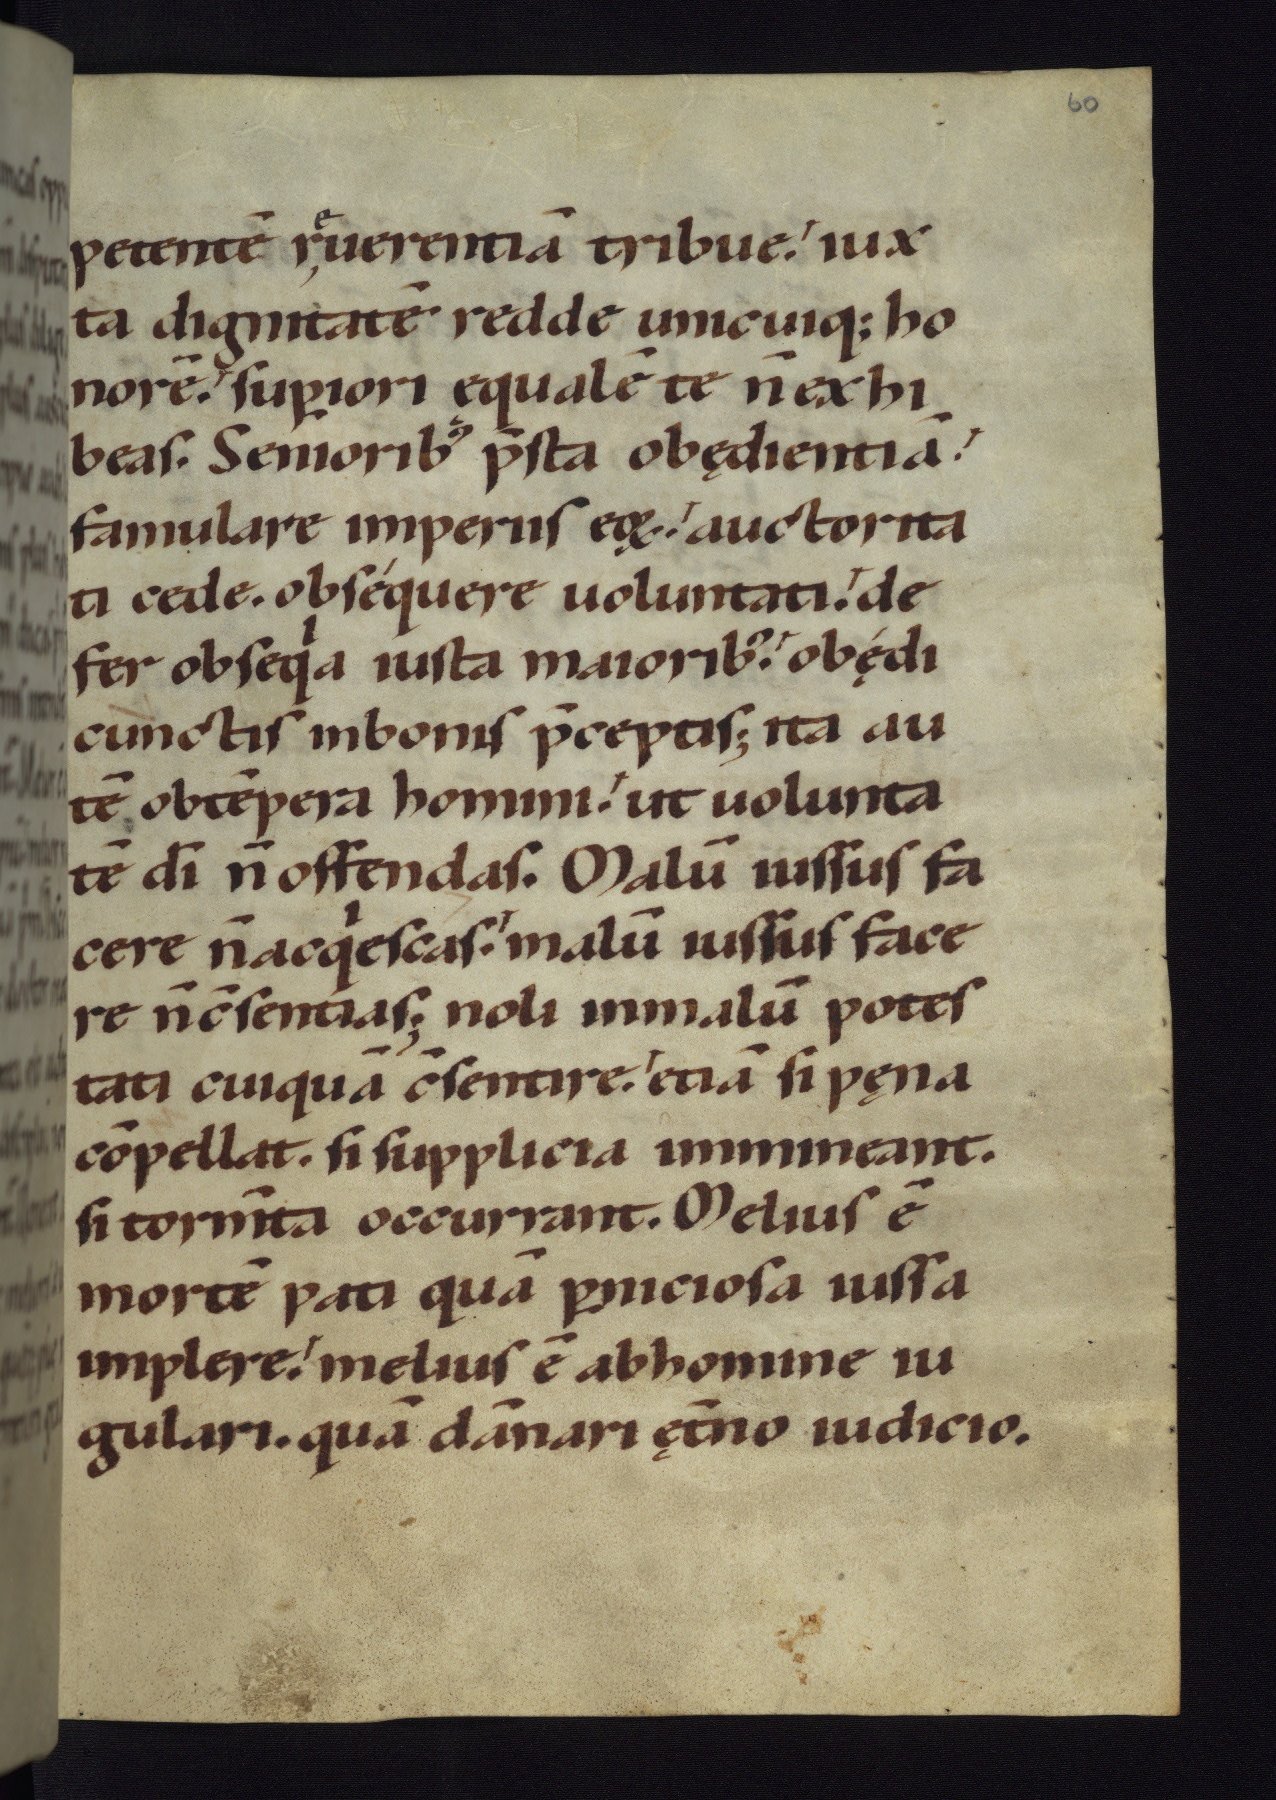 60
petentē rͤuerentiā tribue.' iux
ta dignitatē redde unicuiq; ho
norē.' supiori ęqualē te n̄ exhi
beas. Senioribꝰ p̄sta obędientiā.'
famulare imperiis eoꝝ.' auctorita
ti cede. obséquere uoluntati.' de
fer obseqͥa iusta maioribꝰ.' obędi
cunctis inbonis p̄ceptis; ita au
tē obtēpera homini.' ut uolunta
tē dī n̄ offendas. Malū iussus fa
cere n̄ acqͥescas.' malū iussus face
re n̄ c̄sentias; noli inmalū potes
tati cuiquā c̄sentire.' etiā si pęna
cōpellat. si supplicia immineant.
si torm̄ta occurrant. Melius ē
mortē pati quā ꝑniciosa iussa
implere.' melius ē abhomine iu
gulari. quā dānari ęt̄no iudicio.